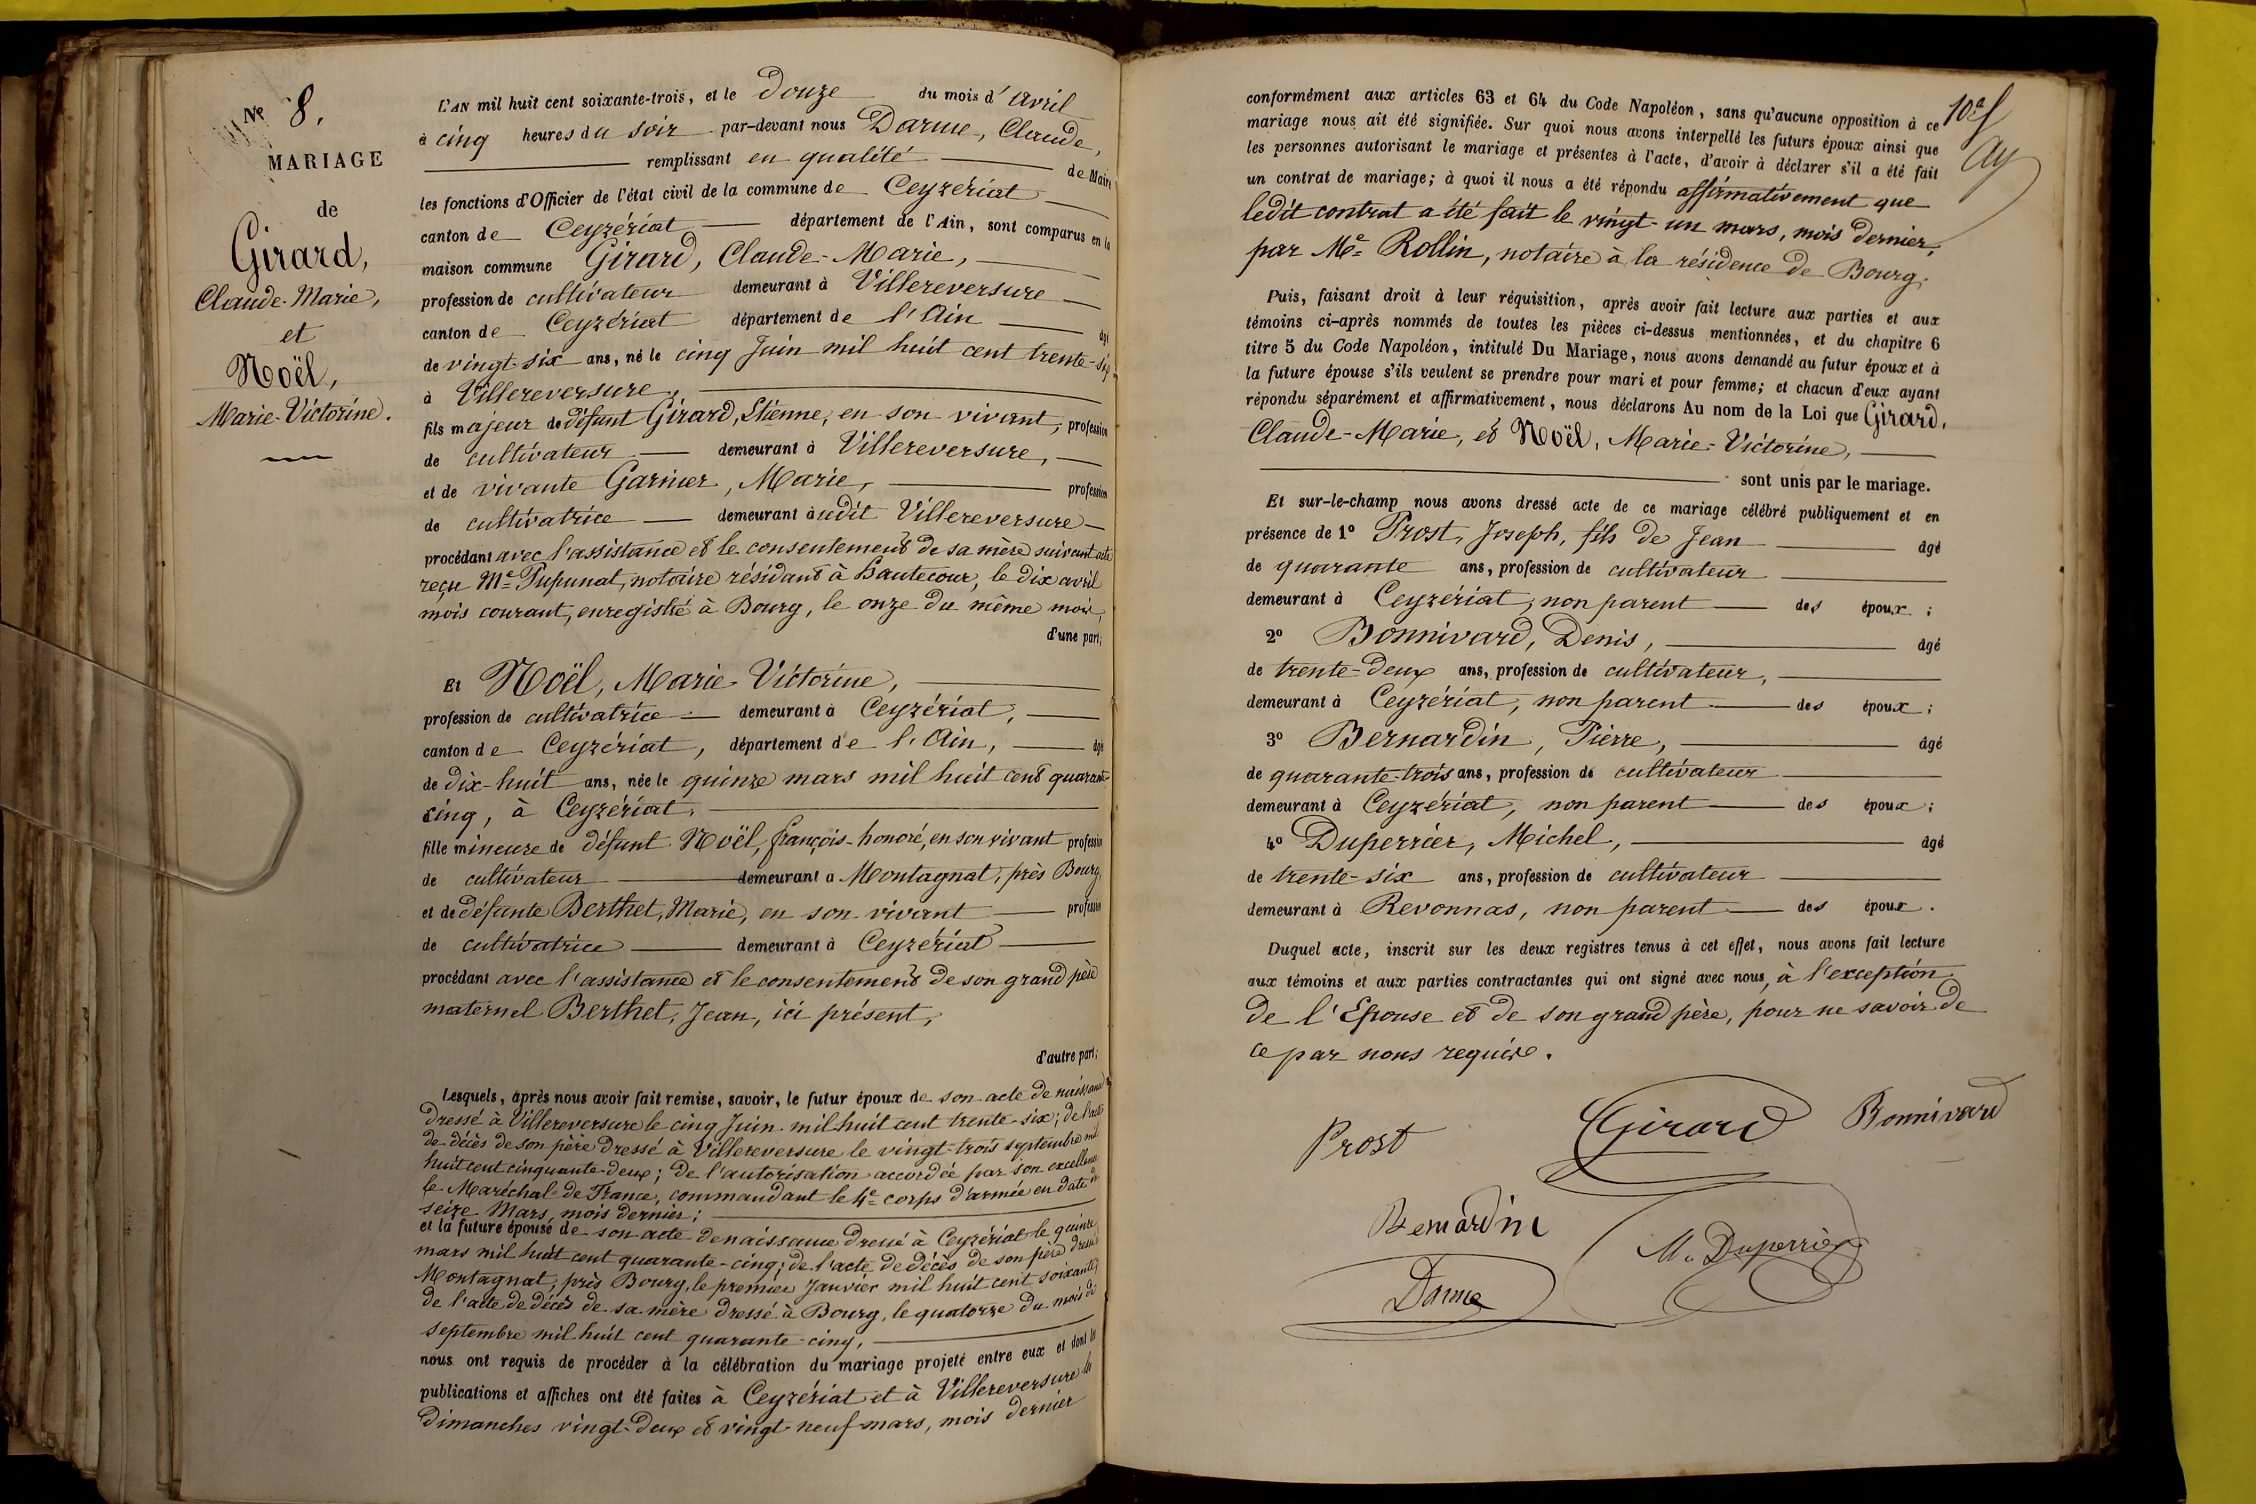 Nº 8.
MARIAGE
de
Girard,
Claude-Marie,
et
Noël,
Marie-Victorine.
L'AN mil huit cent soixante-trois, et le Douze du mois d'Avril
à cinq heures du soir par-devant nous Darme, Claude,
remplissant en qualité de Maire
les fonctions d'Officier de l'état civil de la commune de Ceyzériat
canton de Ceyzériat département de l'Ain, sont comparus en la
maison commune Girard, Claude-Marie,
profession de cultivateur demeurant à Villereversure
canton de Ceyzériat département de l'Ain âgé
de vingt-six ans, né le cinq Juin mil huit cent trente-six
à Villereversure,
fils majeur de défunt Girard, Etienne, en son vivant, profession
de cultivateur demeurant à Villereversure,
et de vivante Garnier, Marie, profession
de cultivatrice demeurant audit Villereversure
procédant avec l'assistance et le consentement de sa mère suivant acte
reçu Me Pupunat, notaire résidant à Hautecour, le dix avril
mois courant, enregistré à Bourg, le onze du même mois,
d'une part;
Et Noël, Marie-Victorine,
profession de cultivatrice demeurant à Ceyzériat,
canton de Ceyzériat, département de l'Ain, âgée
de dix-huit ans, née le quinze mars mil huit cent quarante-
cinq, à Ceyzériat,
fille mineure de défunt Noël, françois-honoré, en son vivant profession
de cultivateur demeurant à Montagnat, près Bourg,
et de défunte Berthet, Marie, en son vivant profession
de cultivatrice demeurant à Ceyzériat
procédant avec l'assistance et le consentement de son grand père
maternel Berthet, Jean, ici présent,
d'autre part;
Lesquels, après nous avoir fait remise, savoir, le futur époux de son acte de naissance
dressé à Villereversure le cinq Juin mil huit cent trente-six; de l'acte
de décès de son père dressé à Villereversure le vingt-trois septembre mil
huit cent cinquante-deux; de l'autorisation accordée par son excellence
le Maréchal de France, commandant le 4e corps d'armée en date du
seize Mars, mois dernier;
et la future épouse de son acte de naissance dressé à Ceyzériat le quinze
mars mil huit cent quarante-cinq; de l'acte de décès de son père dressé à
Montagnat, près Bourg, le premier Janvier mil huit cent soixante;
de l'acte de décès de sa mère dressé à Bourg, le quatorze du mois de
septembre mil huit cent quarante-cinq,
nous ont requis de procéder à la célébration du mariage projeté entre eux et dont les
publications et affiches ont été faites à Ceyzériat et à Villereversure les
dimanches vingt-deux et vingt-neuf mars, mois dernier
conformément aux articles 63 et 64 du Code Napoléon, sans qu'aucune opposition à ce
mariage nous ait été signifiée. Sur quoi nous avons interpellé les futurs époux ainsi que
les personnes autorisant le mariage et présentes à l'acte, d'avoir à déclarer s'il a été fait
un contrat de mariage; à quoi il nous a été répondu affirmativement que
ledit contrat a été fait le vingt-un mars, mois dernier,
par Me Rollin, notaire à la résidence de Bourg.
Puis, faisant droit à leur réquisition, après avoir fait lecture aux parties et aux
témoins ci-après nommés de toutes les pièces ci-dessus mentionnées, et du chapitre 6
titre 5 du Code Napoléon, intitulé Du Mariage, nous avons demandé au futur époux et à
la future épouse s'ils veulent se prendre pour mari et pour femme; et chacun d'eux ayant
répondu séparément et affirmativement, nous déclarons Au nom de la Loi que Girard,
Claude-Marie, et Noël, Marie-Victorine,
sont unis par le mariage.
Et sur-le-champ nous avons dressé acte de ce mariage célébré publiquement et en
présence de 1º Prost, Joseph, fils de Jean âgé
de quarante ans, profession de cultivateur
demeurant à Ceyzériat, non parent des époux;
2º Bonnivard, Denis, âgé
de trente-deux ans, profession de cultivateur,
demeurant à Ceyzériat, non parent des époux;
3º Bernardin, Pierre, âgé
de quarante-trois ans, profession de cultivateur
demeurant à Ceyzériat, non parent des époux;
4º Duperrier, Michel, âgé
de trente-six ans, profession de cultivateur
demeurant à Revonnas, non parent des époux.
Duquel acte, inscrit sur les deux registres tenus à cet effet, nous avons fait lecture
aux témoins et aux parties contractantes qui ont signé avec nous, à l'exception
de l'Epouse et de son grand père, pour ne savoir de
ce par nous requise.
Prost Girard Bonnivard
Bernardin M. Duperrier
Darme